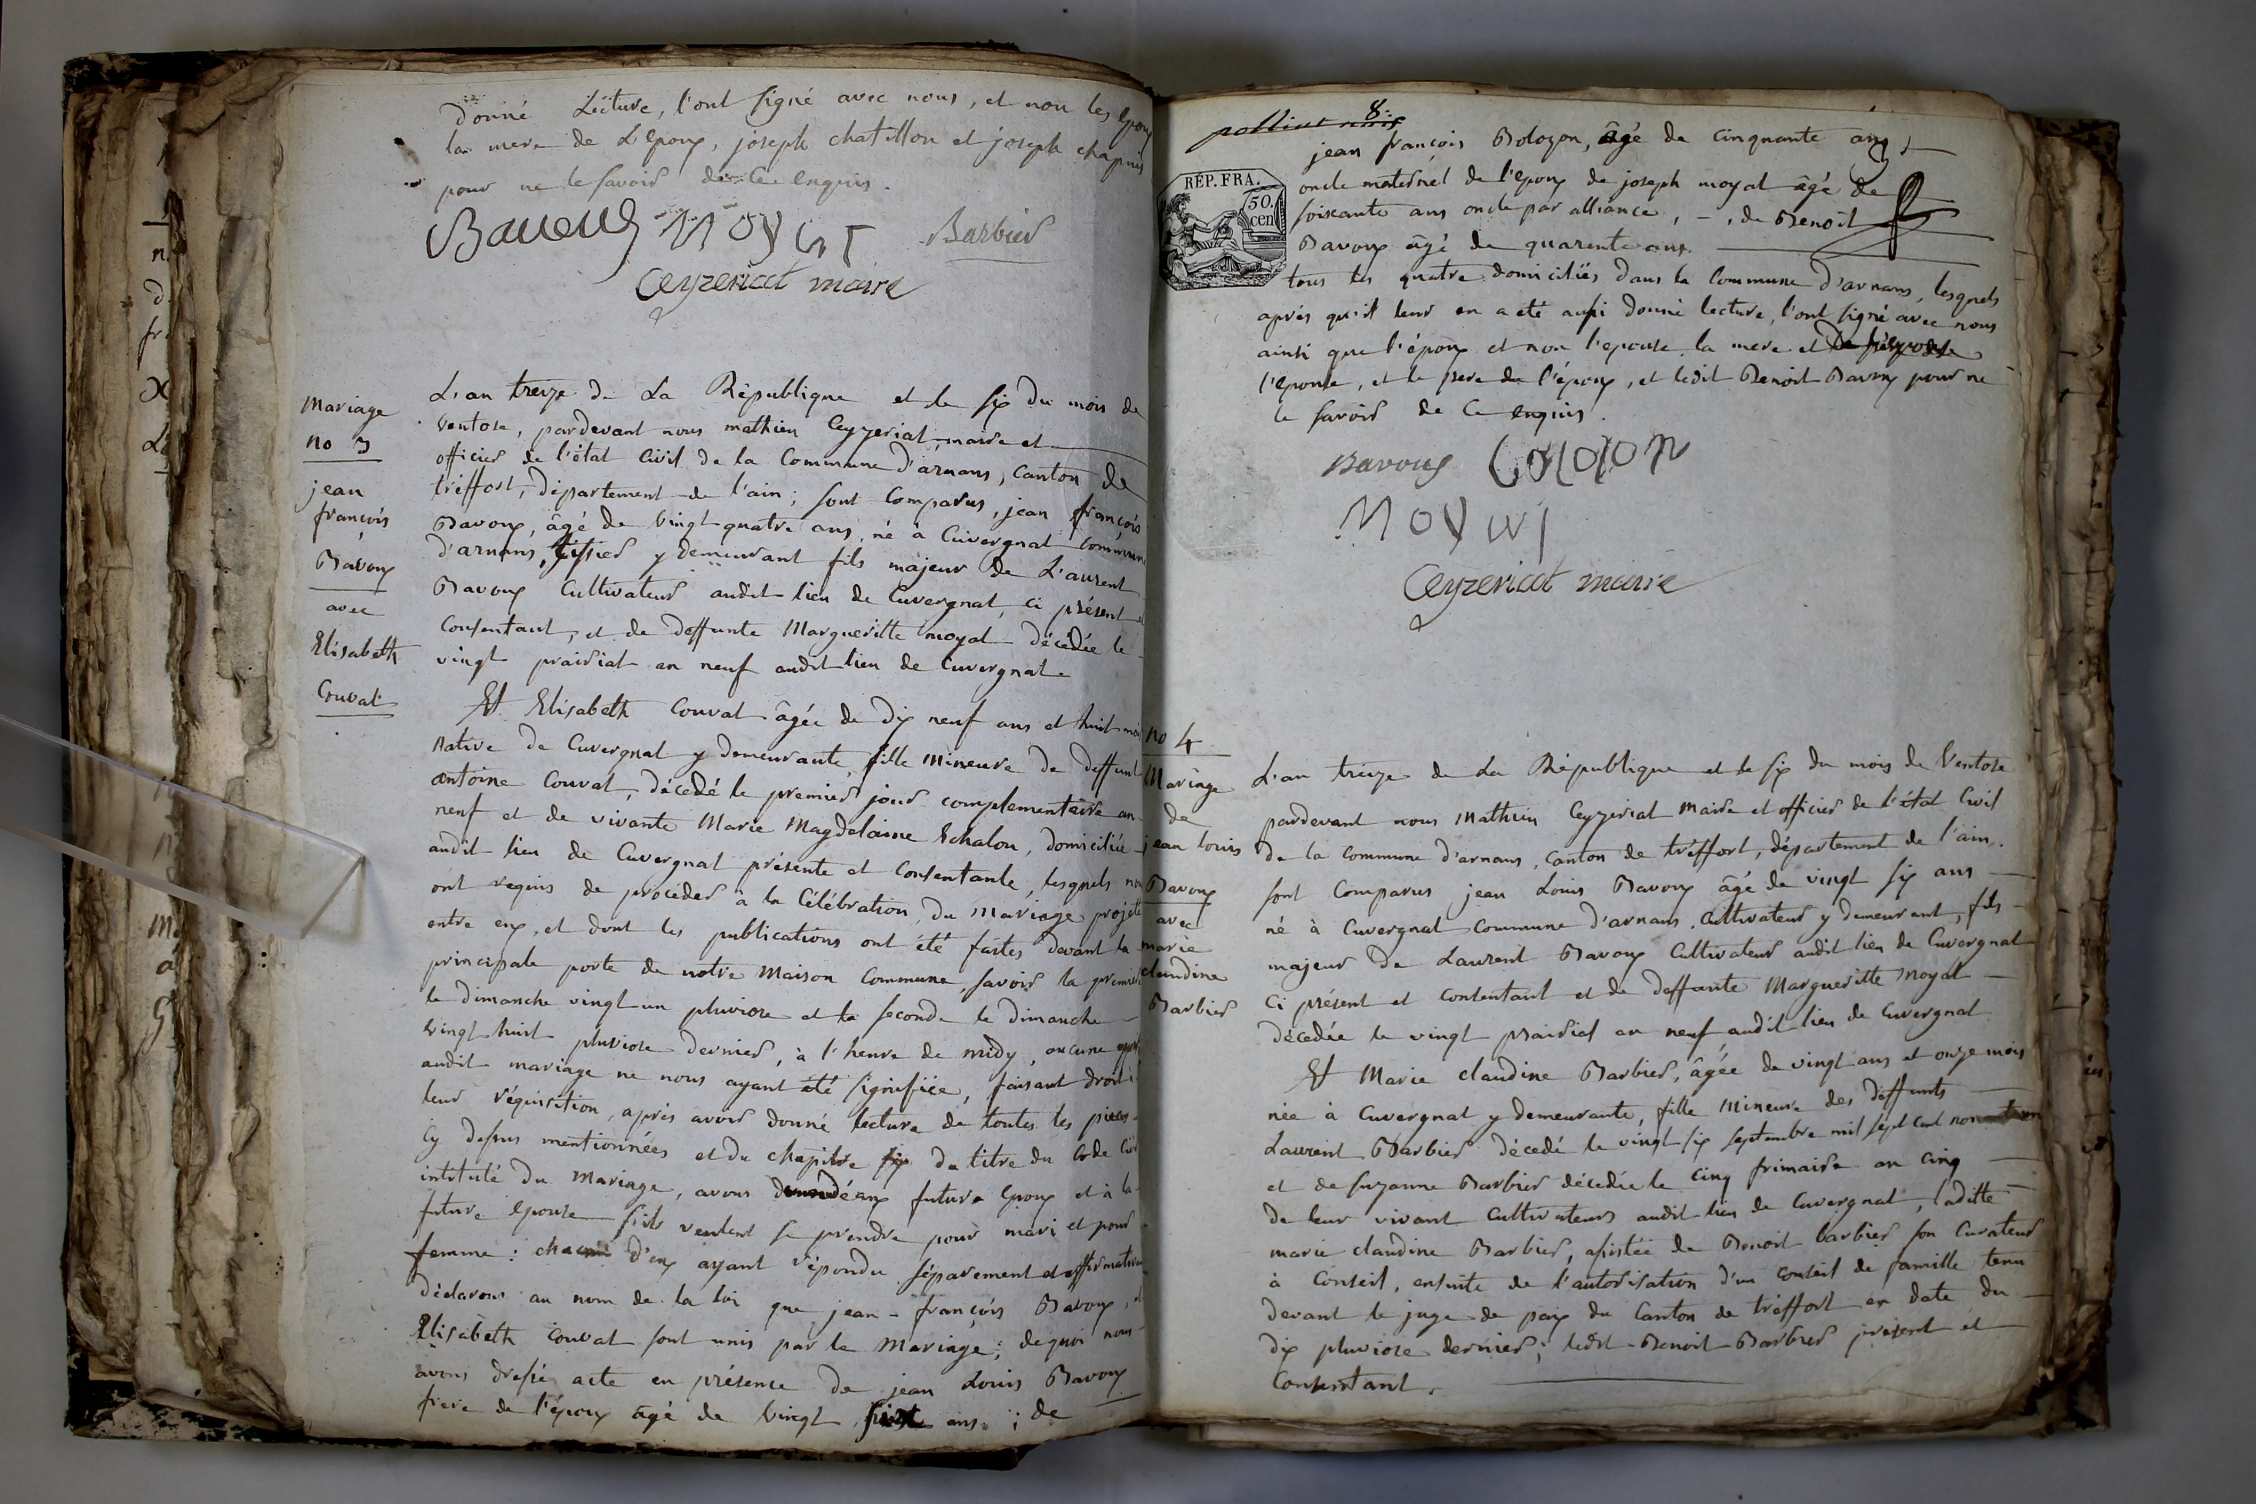 donné Lecture, l'ont signé avec nous, et non les Epoux
la mere de L'Epoux, joseph chatillon et joseph chapuis
pour ne le savoir de ce enquis.
Bavoux Moyat Barbier
Ceyzeriat maire
Mariage
no 3
jean
françois
Bavoux
avec
Elisabeth
Couvat
L'an treize de La République et le six du mois de
ventose, pardevant nous mathieu Ceyzeriat, maire et
officier de l'état Civil de la Commune d'arnans, Canton de
tréffort, département de l'ain; sont Comparus, jean françois
Bavoux, âgé de vingt quatre ans, né à Cuvergnat Commune
d'arnans, tissier y demeurant fils majeur de L'aurent
Bavoux Cultivateur audit lieu de Cuvergnat, ci présent et
Consentant, et de deffunte Margueritte moyat décédée le
vingt prairial an neuf audit lieu de Cuvergnat.
Et Elisabeth Couvat âgée de dix neuf ans et huit mois
Native de Cuvergnat y demeurante, fille Mineure de deffunt
antoine Couvat, décédé le premier jour complementaire an
neuf et de vivante Marie Magdelaine Echalon, domiciliée
audit lieu de Cuvergnat présente et Consentante, lesquels nous
ont requis de procéder à la Célébration du Mariage projetté
entre eux, et dont les publications ont été faites devant la
principale porte de notre Maison Commune, savoir la premiere
le dimanche vingt un pluviose et la seconde le dimanche
vingt huit pluviose dernier, à l'heure de midy, aucune
audit mariage ne nous ayant été signifiée, faisant droit à
leur réquisition, après avoir donné lecture de toutes les pièces
Cy dessus mentionnées et du chapitre six du titre du Code Civil
intitulé du Mariage, avons demandé aux future Epoux et à la
future Epouse s'ils veulent se prendre pour mari et pour
femme: chacun d'eux ayant répondu séparement et affirmativement
déclarons au nom de la loi que jean-françois Bavoux, et
Elisabeth Couvat sont unis par le Mariage; de quoi nous
avons dressé acte en présence de jean Louis Bavoux
frere de l'époux âgé de vingt six ans; de
8.
jean françois Bolozon, âgé de cinquante ans,
RÉP. FRA.
50.
cen
oncle maternel de l'Epoux de joseph moyat âgé de
soixante ans oncle par alliance, de Benoît
Bavoux âgé de quarente ans.
tous les quatre domiciliés dans la Commune d'arnans, lesquels
après qu'il leur en a été aussi donné lecture, l'ont signé avec nous
ainsi que l'époux et non l'epouse la mere et
l'epouse, et le pere de l'époux, et ledit Benoit Bavoux pour ne
le savoir de Ce enquis.
Bavoux Bolozon
Moyat
Ceyzeriat maire
no 4
Mariage
de
jean louis
Bavoux
avec
marie
claudine
Barbier
L'an treize de La République et le six du mois de Ventose
pardevant nous Mathieu Ceyzeriat Maire et officier de l'état Civil
de la Commune d'arnans, Canton de tréffort, département de l'ain.
sont Comparus jean Louis Bavoux âgé de vingt six ans
né à Cuvergnat Commune d'arnans, Cultivateur y demeurant, fils
majeur de Laurent Bavoux Cultivateur audit lieu de Cuvergnat
Ci présent et Consentant et de deffunte Margueritte Moyat
décédée le vingt prairial an neuf audit lieu de Cuvergnat
Et Marie claudine Barbier, âgée de vingt ans et onze mois
née à Cuvergnat y demeurante, fille Mineure des deffunts
Laurent Barbier décédé le vingt six septembre mil sept cent
et de suzanne Barbier décédée le cinq frimaire an cinq
de leur vivant Cultivateurs audit lieu de Cuvergnat, laditte
marie claudine Barbier, assistée de Benoit barbier son Curateur
à Conseil, ensuite de l'autorisation d'un conseil de famille tenu
devant le juge de paix du Canton de tréffort en date du
dix pluviose dernier; ledit Benoit Barbier présent et
Consentant.